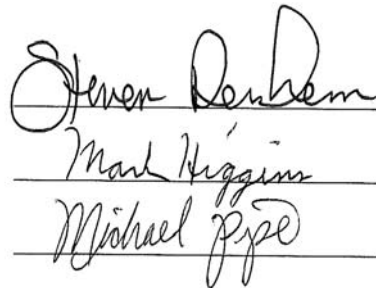 Steven Denhem
Mark Higgins
Michael Pipe